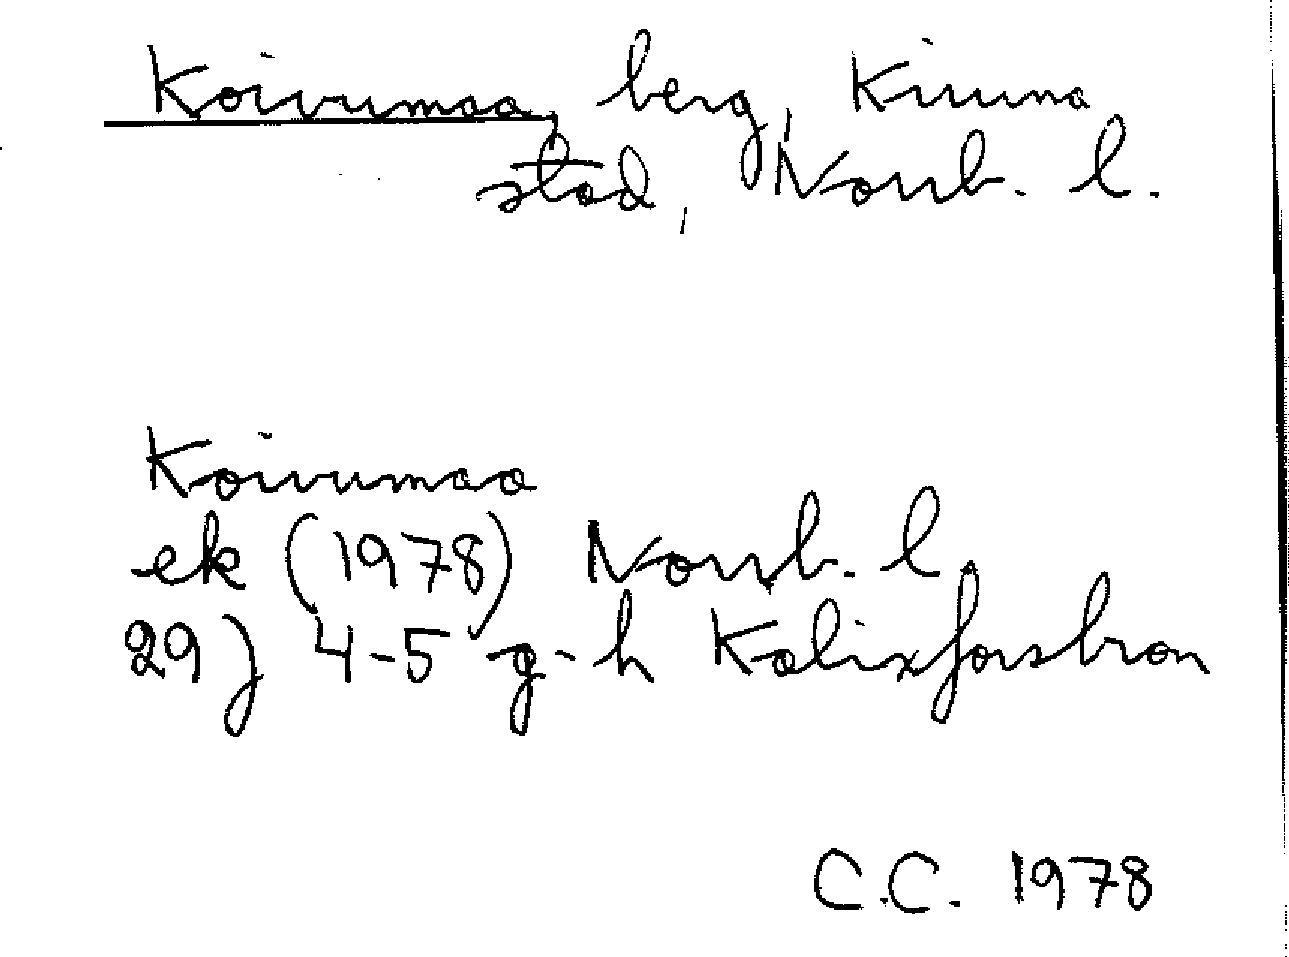 Koivumaa, berg, Kiruna
stad, Norrb. l.
Koivumaa
ek (1978) Norrb. l.
29J 4-5 g-h Kalixforsbron
C.C. 1978